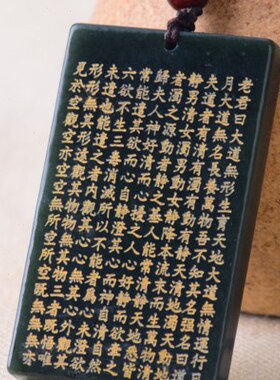 老君曰大道無形生育天地大道無情運行日
月大道無名長養萬物吾不知其名强名曰道
夫道者有清有濁有動有靜天清地濁天動地
靜男清女濁男動女靜降本流末而生萬物清
者濁之源動者靜之基人能常清靜天地悉皆
歸夫人神好清而心擾之人心好靜而欲牽之
常能遣其欲而心自靜澄其心而神自清自然
六欲不生三毒消滅所以不能者爲心未澄欲
未遣也能遣之者內觀其心心無其心外觀其
形形無其形遠觀其物物無其物三者既悟唯
見於空觀空亦空空無所空所空既無無